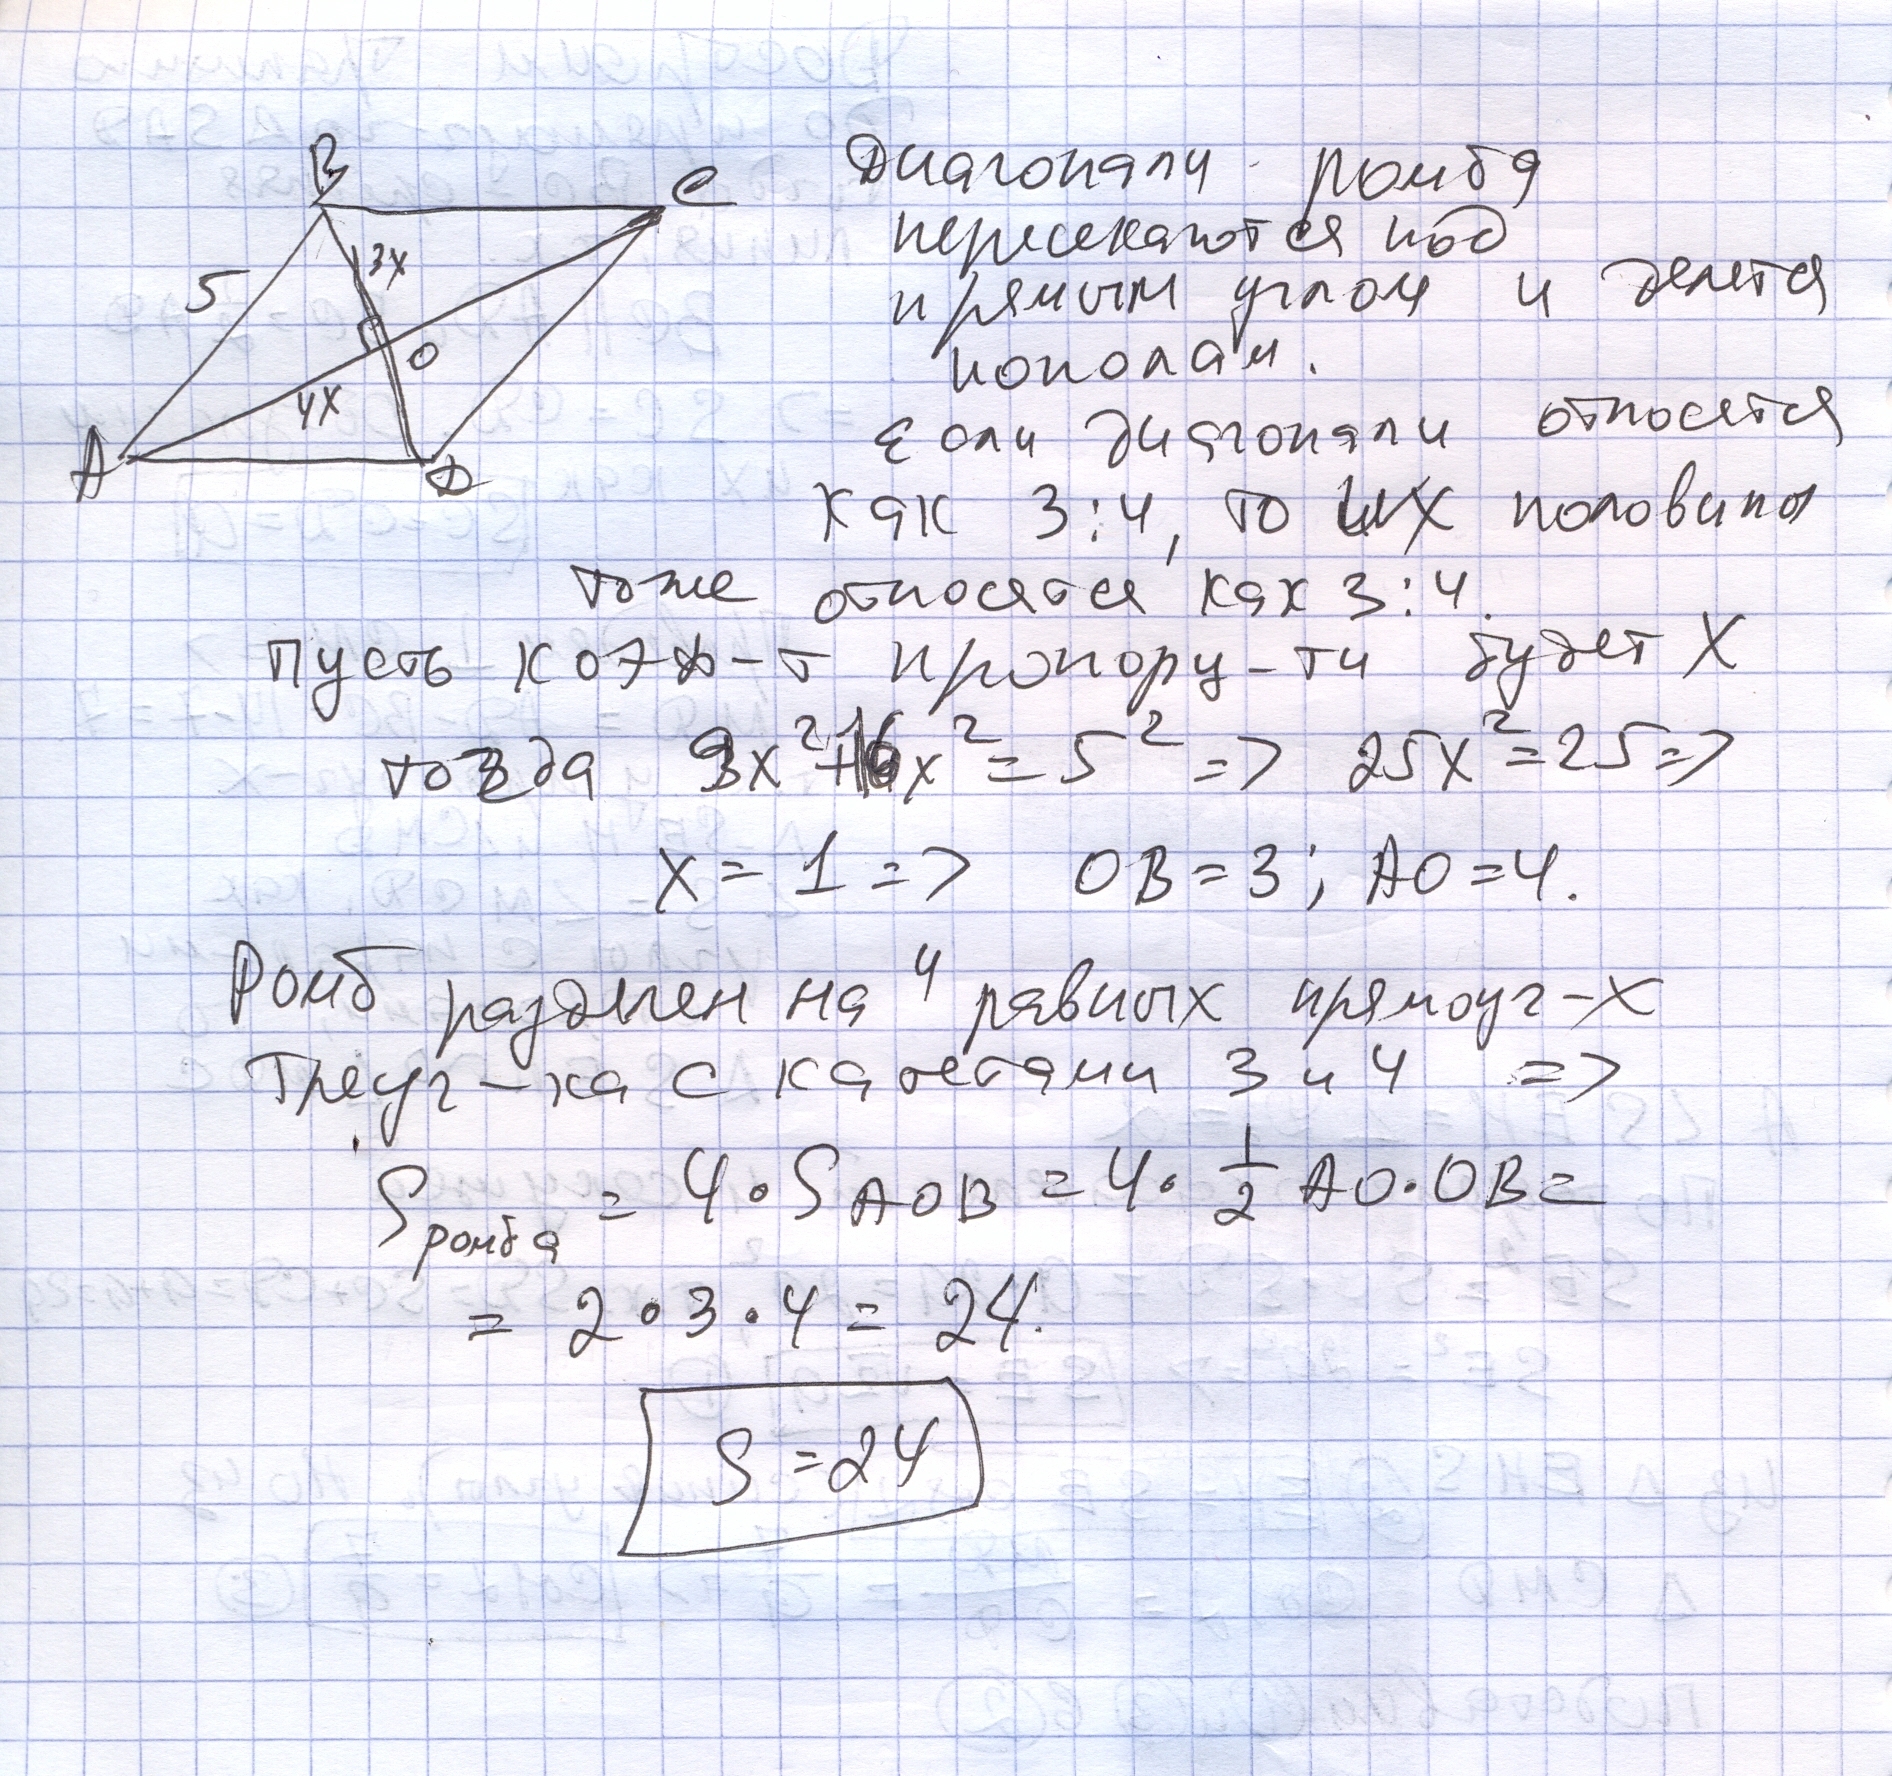 B
C
Диагонали ромба
пересекаются под
5
3x
прямым углом и делятся
O
пополам.
4x
A
D
Если диагонали относятся
как 3:4, то их половины
тоже относятся как 3:4.
Пусть коэф-т пропорц-ти будет X
тогда 9x²+16x²=5² => 25x²=25=>
x=1=> OB=3; AO=4.
Ромб разделен на 4 равных прямоуг-х
треуг-ка с катетами 3 и 4 =>
Sромба = 4•SAOB = 4•1/2 AO•OB=
= 2•3•4 = 24.
S=24